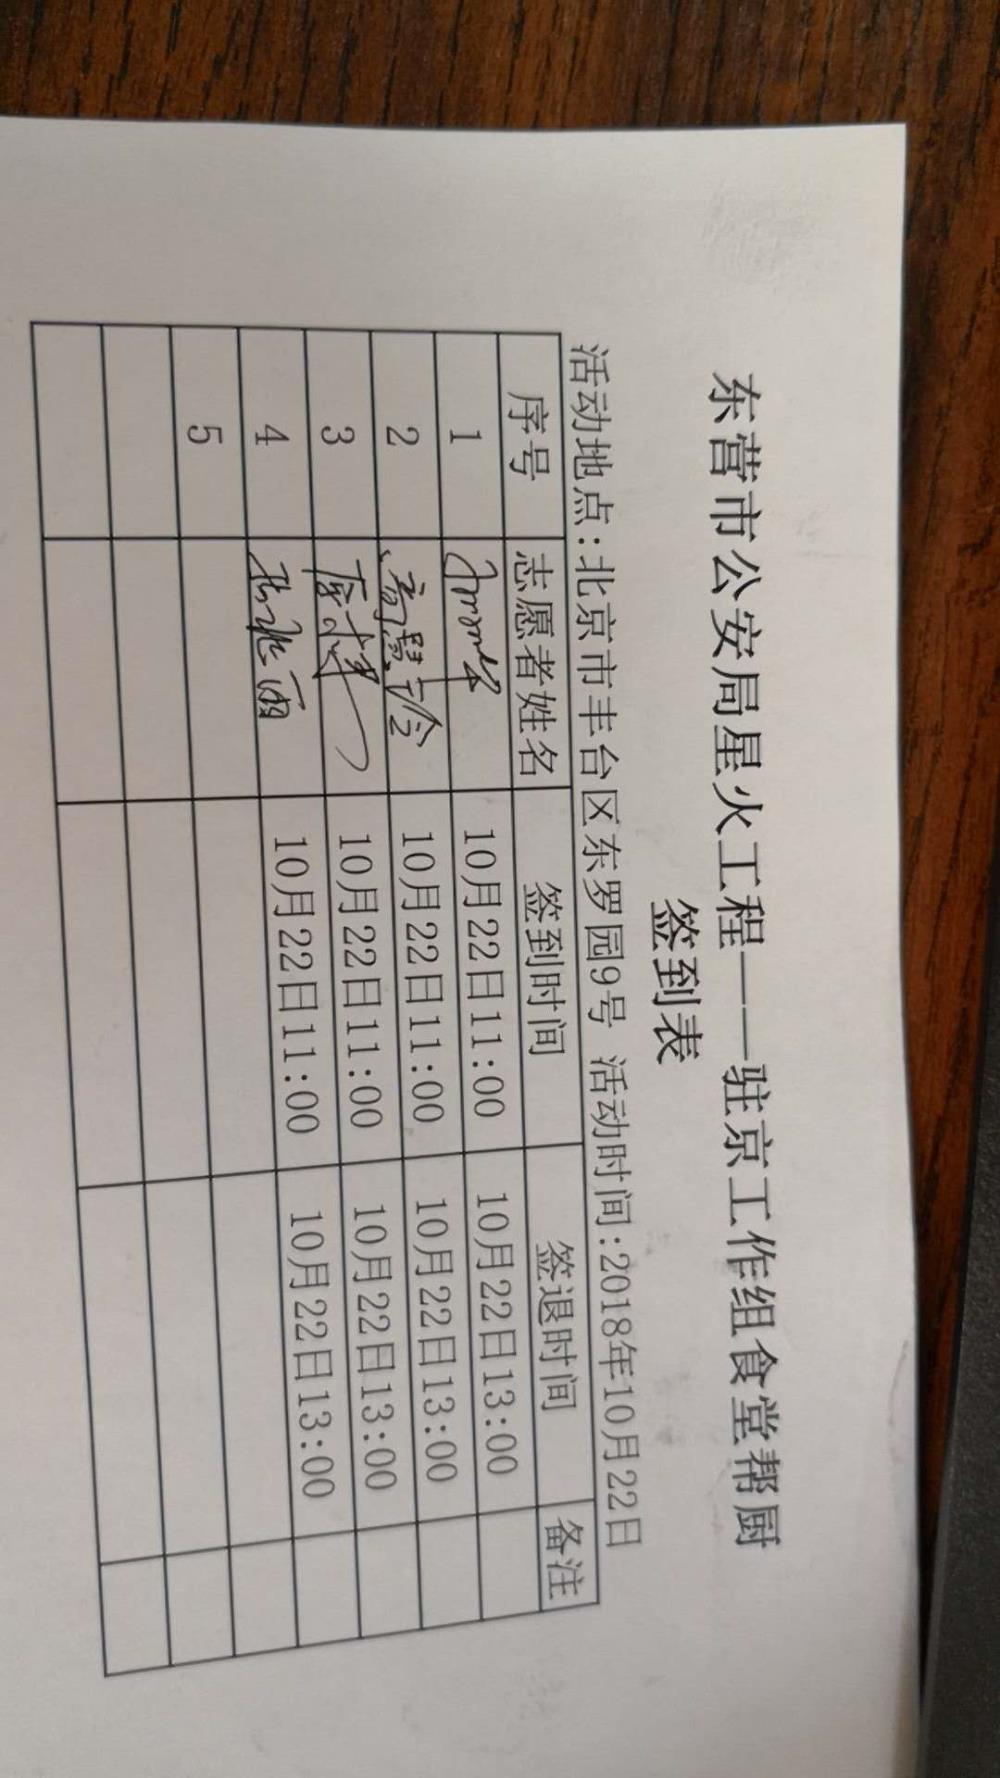 东营市公安局星火工程——驻京工作组食堂帮厨
签到表
活动地点:北京市丰台区东罗园9号 活动时间:2018年10月22日
序号 志愿者姓名 签到时间 签退时间 备注
1 10月22日11:00 10月22日13:00
2 10月22日11:00 10月22日13:00
3 10月22日11:00 10月22日13:00
4 10月22日11:00 10月22日13:00
5